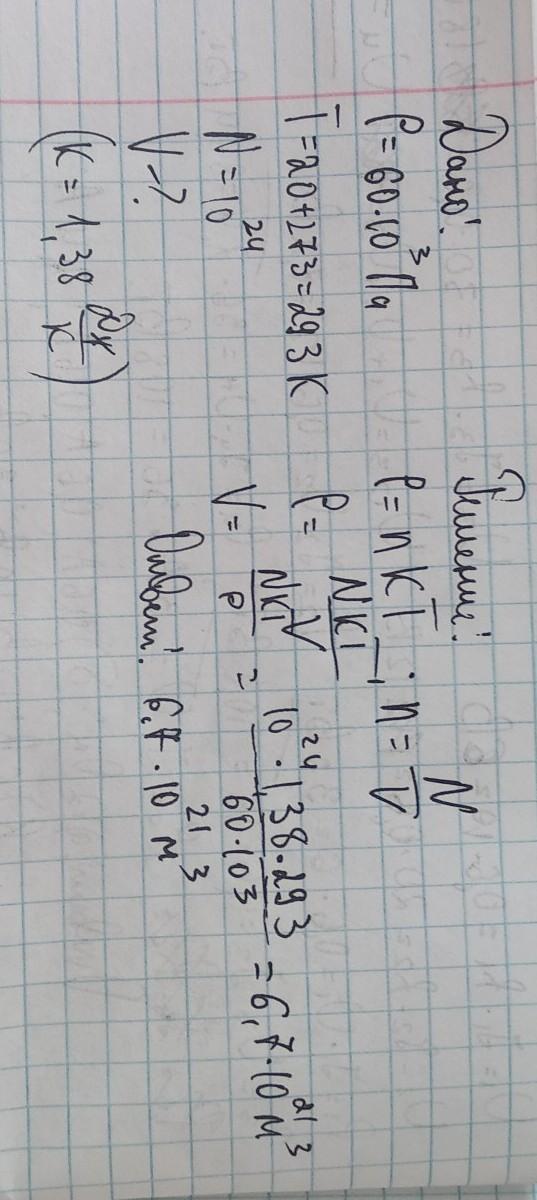 Дано:
P = 60·10³ Па
T = 20+273 = 293 К
N = 10²⁴
V - ?
(К = 1,38 Дж/К)
Решение:
P = n K T ; n = N/V
P = NKT/V
V = NKT/P = 10²⁴·1,38·293/60·10³ = 6,7·10²¹ м³
Ответ: 6,7·10²¹ м³